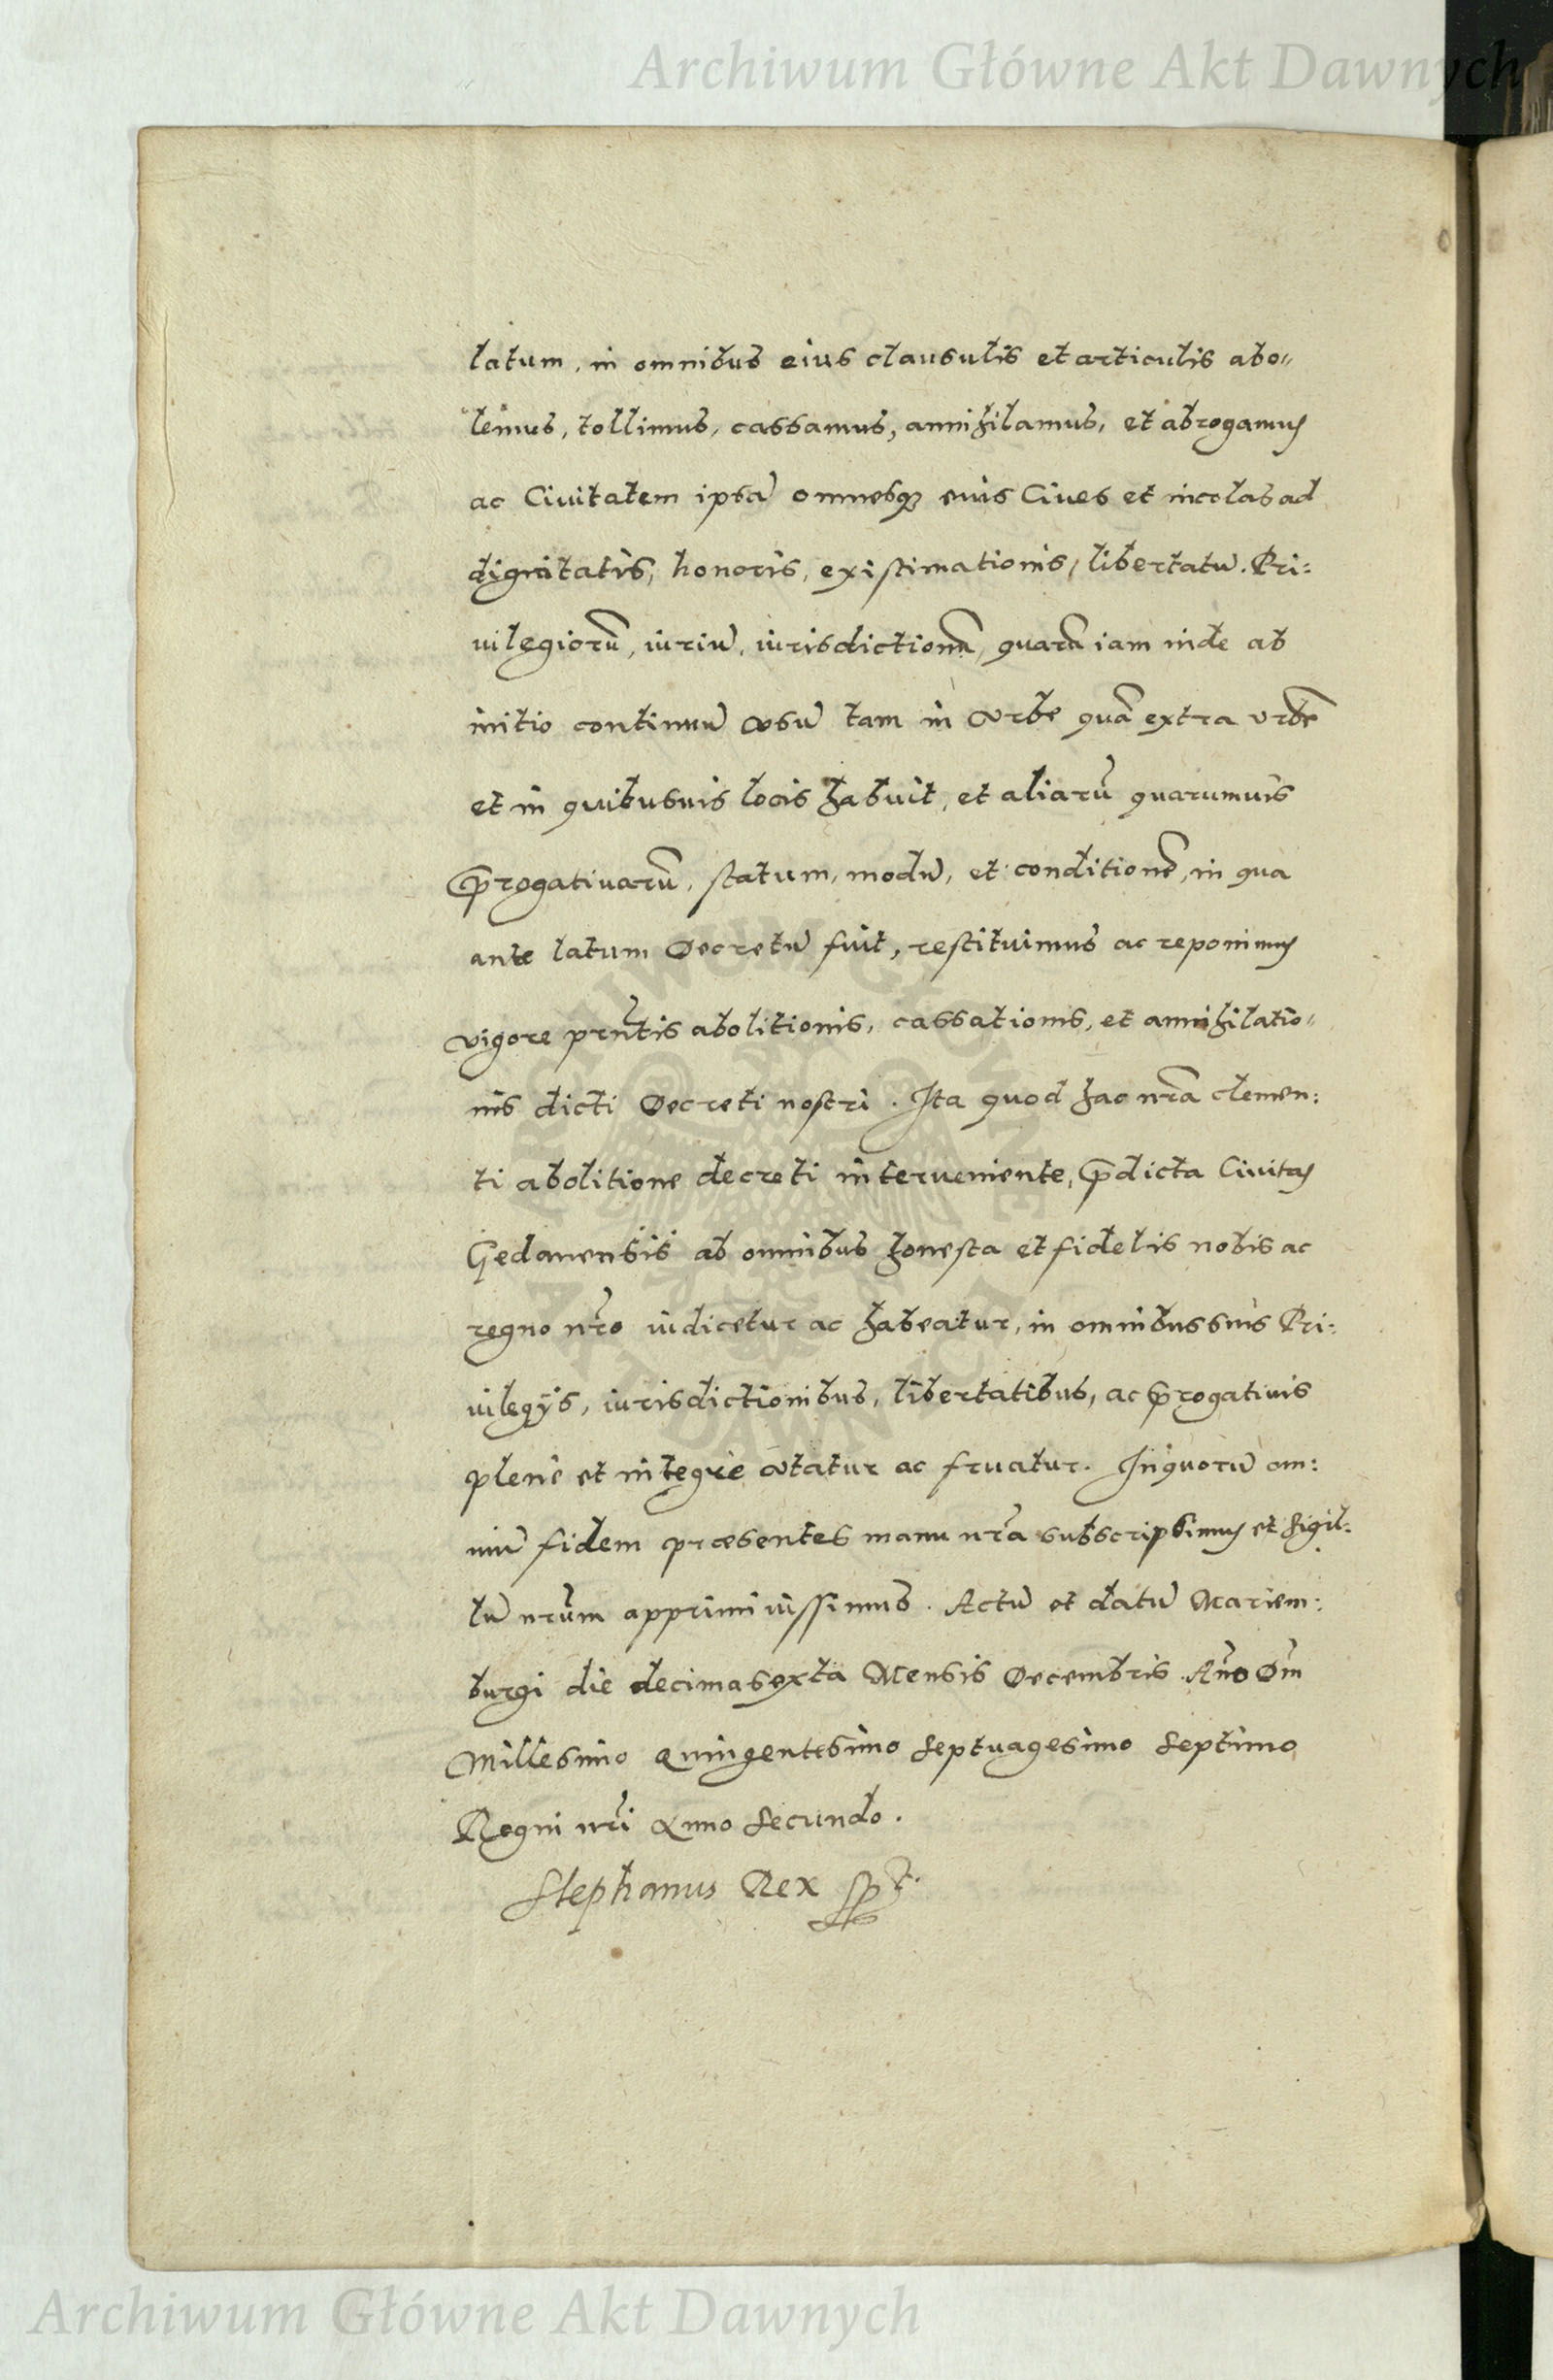 Archiwum Główne Akt Dawnych
latum, in omnibus eius clausulis et articulis abo„
lemus, tollimus, cassamus, annihilamus, et abrogamus
ac Ciuitatem ipsã omnesq3 eius Ciues et incolas ad
dignitatis, honoris, existimationis, libertatũ. Pri:
uilegiorũ, iuriũ, iurisdictionũ, quarũ iam inde ab
initio continuũ vsũ tam in vrbe quã extra vrbẽ
et in quibusuis locis habuit, et aliarũ quarumuis
p̃rogatiuarũ, statum, modũ, et conditionẽ, in qua
ante latum Decretũ fuit, restituimus ac reponimus
vigore prñtis abolitionis, cassationis, et annihilatio„
nis dicti Decreti nostri. Ita quod hac nrã clemen:
ti abolitione decreti interueniente, p̃dicta Ciuitas
Gedanensis ab omnibus honesta et fidelis nobis ac
regno nrõ iudicetur ac habeatur, in omnibus suis Pri:
uilegijs, iurisdictionibus, libertatibus, ac p̃rogatiuis
plenè et integrè vtatur ac fruatur. In quorũ om:
niũ fidem præsentes manu nrã subscripsimus et Sigil:
lũ nrũm apprimi iussimus. Actũ et datũ Mariem:
burgi die decima sexta Mensis Decembris. Anño Dñi
Millesimo Quingentesimo Septuagesimo Septimo
Regni nrĩ Anno Secundo.
Stephanus Rex
ARCHIWUM GŁÓWNE
AKT DAWNYCH
Archiwum Główne Akt Dawnych